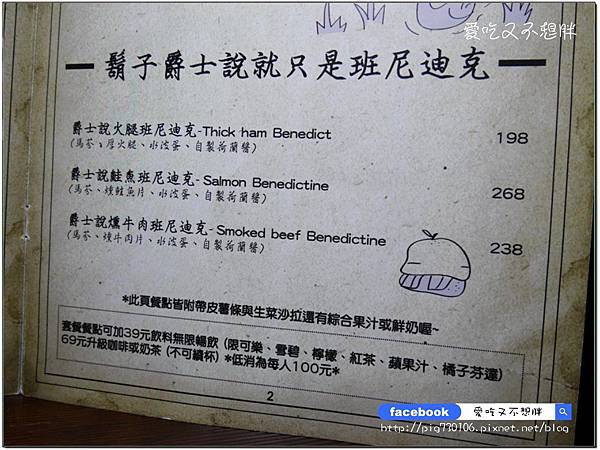 愛吃又不想胖
鬍子爵士說就只是班尼迪克
爵士說火腿班尼迪克-Thick ham Benedict 198
(馬芬、厚火腿、水波蛋、自製荷蘭醬)
爵士說鮭魚班尼迪克- Salmon Benedictine 268
(馬芬、燻鮭魚片、水波蛋、自製荷蘭醬)
爵士說燻牛肉班尼迪克- Smoked beef Benedictine 238
(馬芬、燻牛肉片、水波蛋、自製荷蘭醬)
*此頁餐點皆附帶皮薯條與生菜沙拉還有綜合果汁或鮮奶喔~
套餐餐點可加39元飲料無限暢飲 (限可樂、雪碧、檸檬、紅茶、蘋果汁、橘子芬達)
69元升級咖啡或奶茶 (不可續杯) *低消為每人100元*
2
facebook 愛吃又不想胖
http://pig730106.pixnet.net/blog